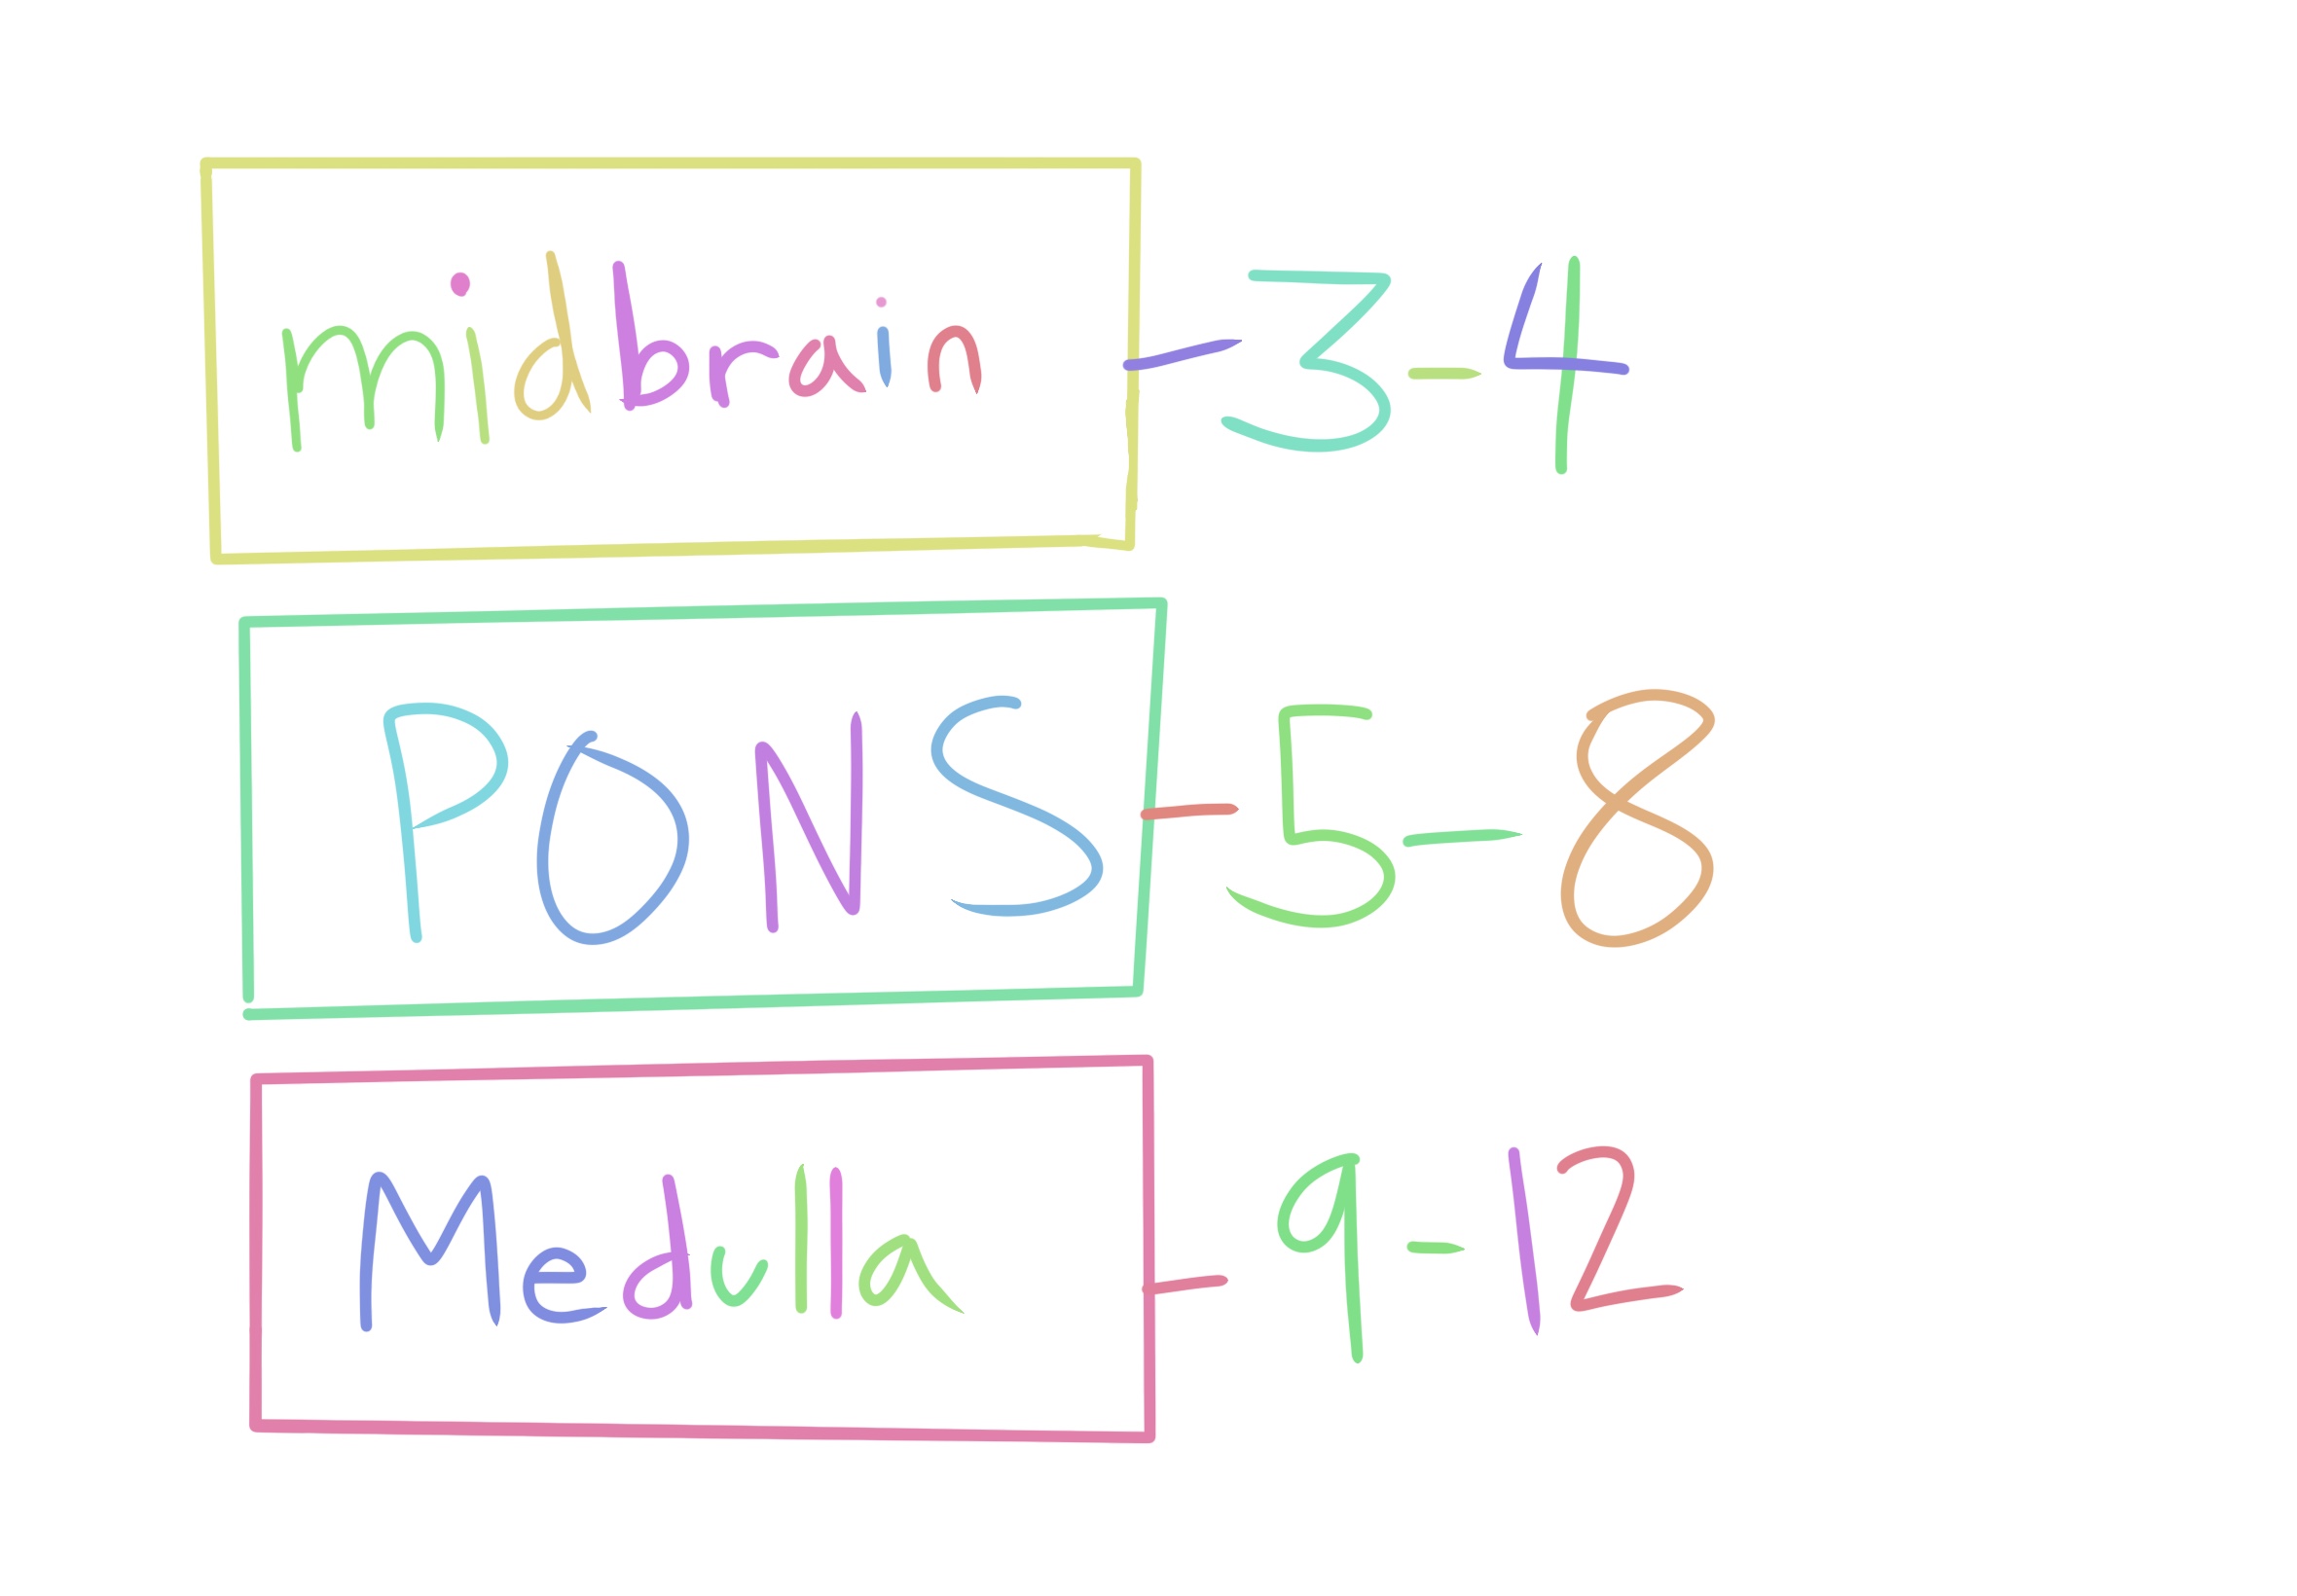 midbrain - 3-4
PONS - 5-8
Medulla - 9-12